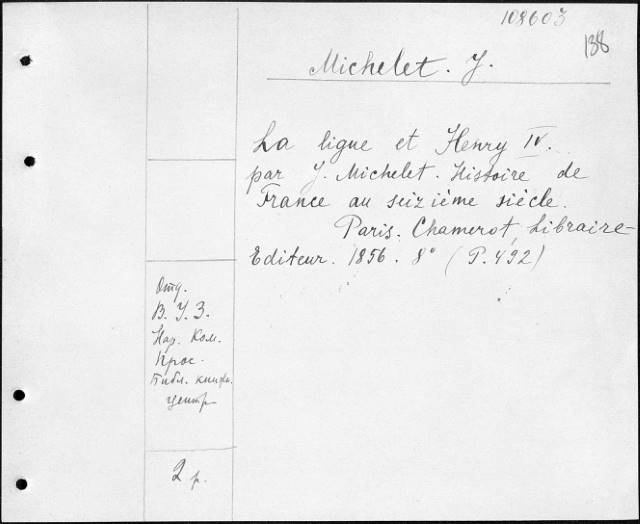 108603
138
Michelet. J.
La ligue et Henry IV.
par J. Michelet. Histoire de
France au seizième siècle.
Paris. Chamerot, Libraire-
Editeur. 1856. 8° (P. 492)
Отд.
В. У. З.
Нар. Ком.
Прос.
Библ. книжн.
центр
2 р.